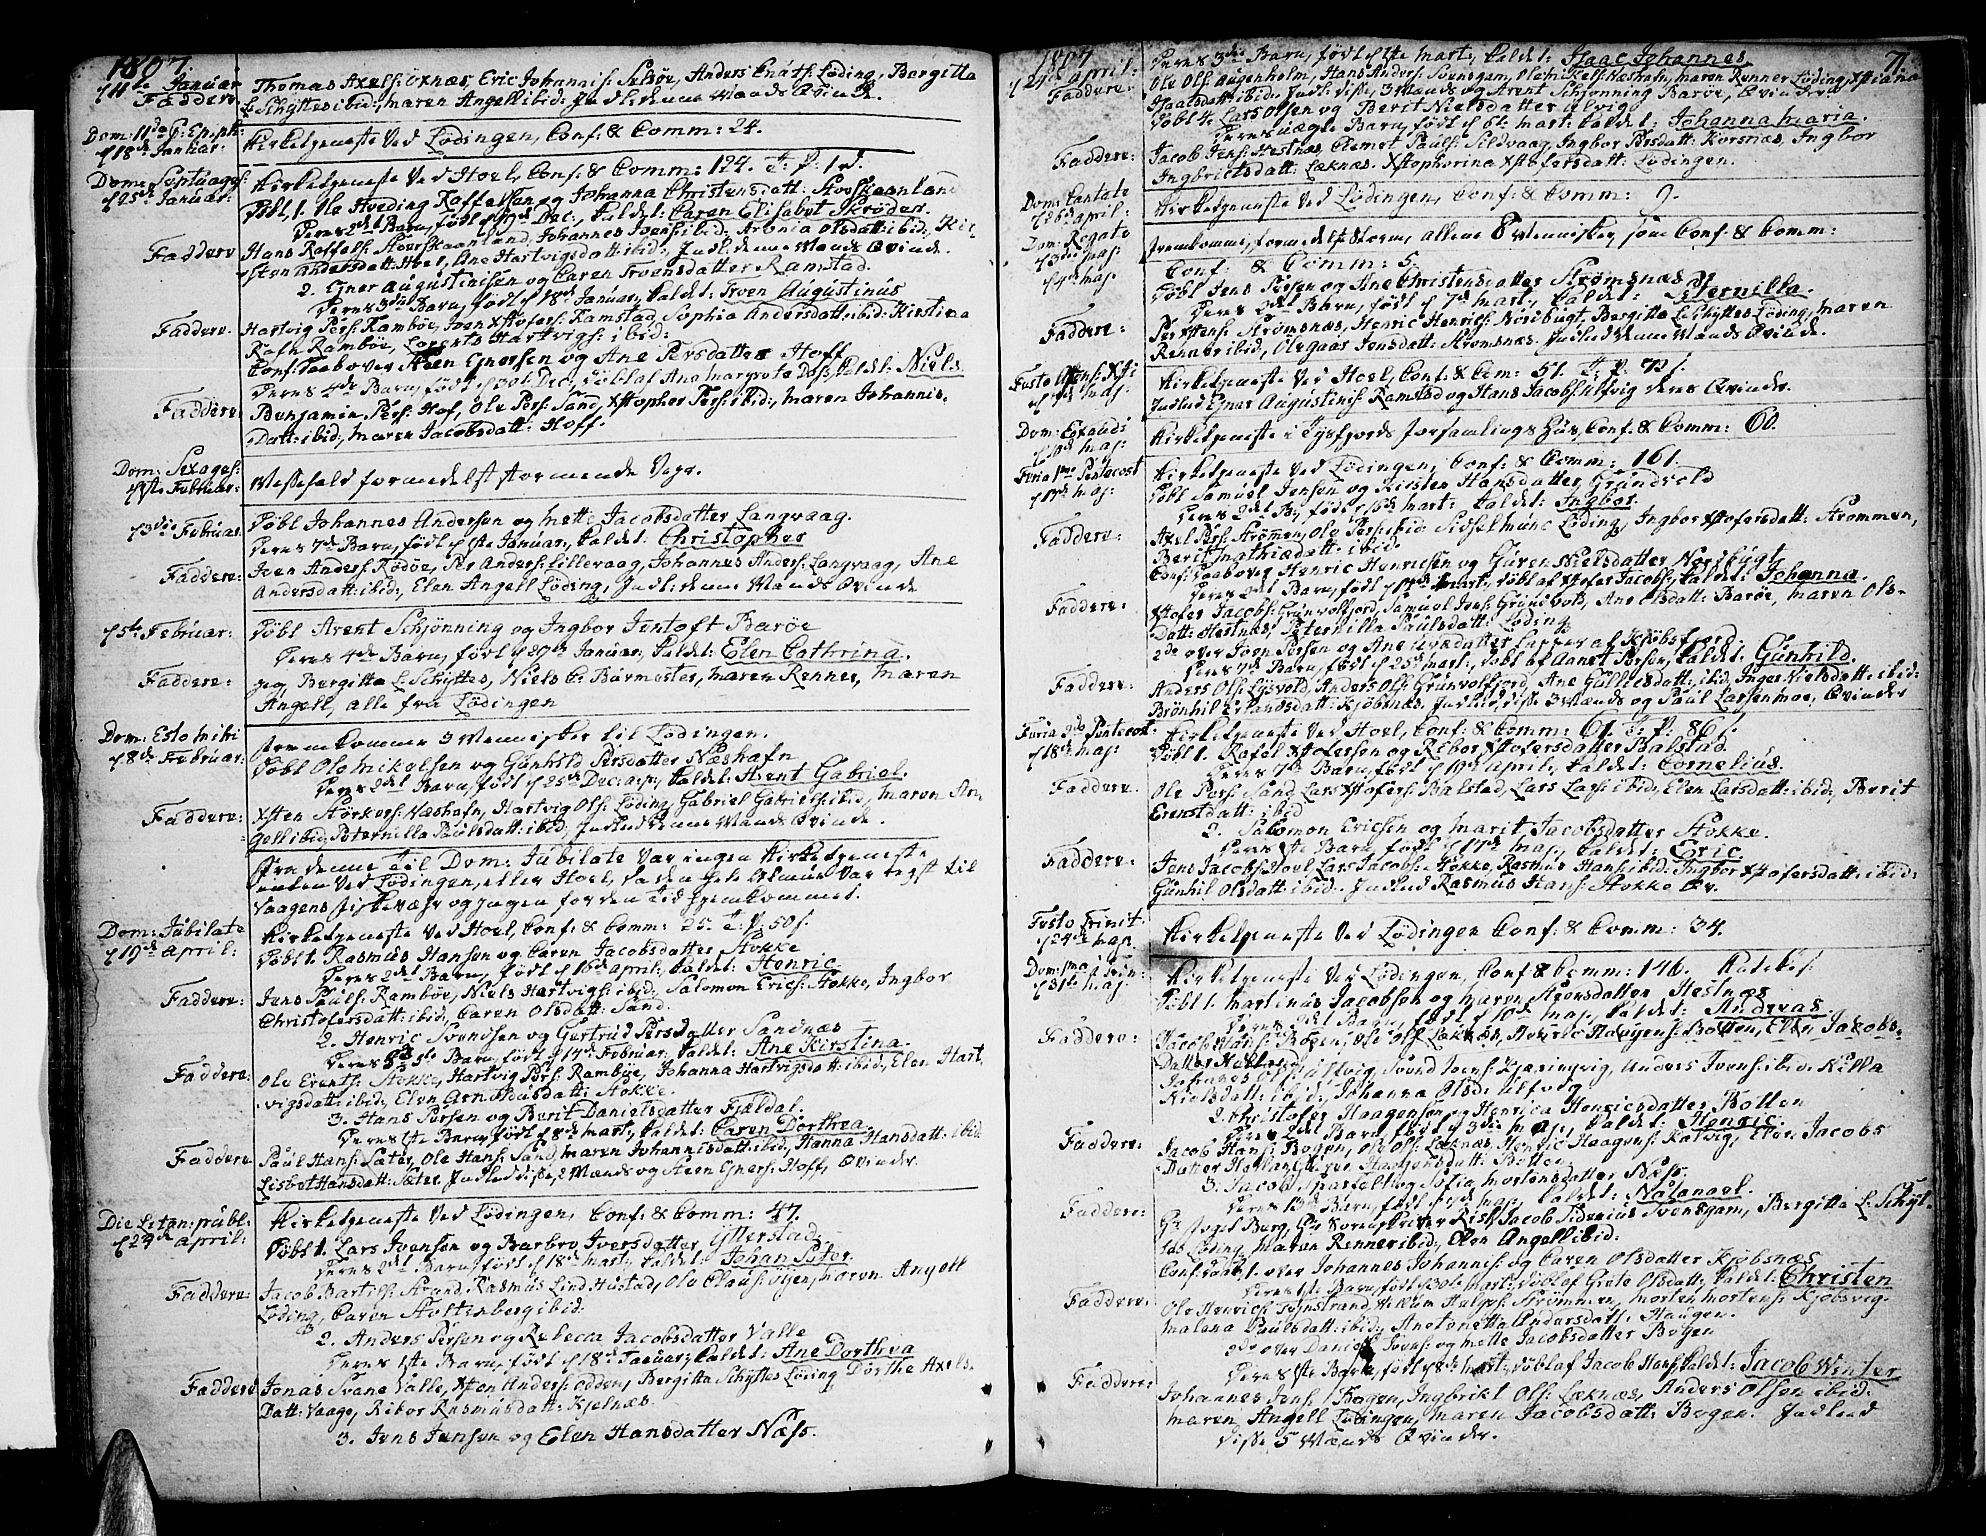 1807.
d 11te Januar
Faddere
Thomas Axels: Oxnæs, Eric Johannis: Selsøe, Anders Knuts: Løding, Bergitta
L: Schyttes ibid:, Maren Angell ibid: Indl: denne Mands Qvinde.
d 18de Januar.
Kirketjeneste Ved Lødingen, Conf: & Comm: 24.
Dom: Septuages:
d 25de Januar:
Kirketjeneste Ved Hoel, Conf: & Comm: 124.
Døbt 1. Ole Hveding Raffelsen og Johanna Christensdatt:
Deres 2det Barn, født d 19de Dec:, kaldet: Caren Elisabet Skrøder.
Faddere
Hans Raffels: Stoerskaanland, Johannes Ivers: ibid:, Aronia Olsdatt: ibid:, Kir-
sten Andersdatt: Hoel, Ane Hartvigsdatt: ibid:, Indl: denne Mands Qvinde.
2. Ejner Augustinisen og Caren Ivensdatter Ramstad.
Deres 3die Barn, født d 18de Januar, kaldet: Iven Augustinus
Faddere.
Hartvig Pers: Rambøe, Iven Xstofers: Ramstad, Sophia Andersdatt: ibid: Kirstina
Rambøe, Lorents Hartvigs: ibid:
Conf: Daab over Steen Ejnersen og Ane Persdatter Hoff
Deres 4de Barn, født d 30te Dec:, døbt af Ane Margrete kaldet: Niels
Faddere
Benjamin Pers: Hof, Ole Pers: Sand, Xstopher Pers: ibid:, Maren Johannis-
Datt: ibid:, Maren Jacobsdatt: Hoff.
Dom: Sexages:
d 1ste Februar:
Messefald formedelst stormende Vejr.
d 3die Februar
Døbt Johannes Andersen og Mette Jacobsdatter Langvaag.
Deres 7de Barn, født d 1ste Januar, kaldet: Christopher
Faddere:
Iven Anders: Rødøe, Per Anders: Lillevaag, Johannes Anders: Langvaag, Ane
Andersdatt: ibid:, Elen Angell Løding, Indl: denne Mands Qvinde
d 5te Februar:
Døbt Arent Schjønning og Ingbor Jentoft Barøe
Deres 4de Barn, født d 20de Januar, kaldet: Elen Cathrina.
Faddere:
jeg, Bergitta L: Schyttes, Niels Barmester, Maren Renner, Maren
Angell, alle fra Lødingen
Dom: Esto Mihi
d 8de Februar:
fremkomme 9 Mennisker til Lødingen.
Døbt Ole Mikelsen og Gunhild Persdatter Næshafn
Deres 2det Barn, født d 25de Dec: kaldet: Arent Gabriel.
Faddere:
Xsten Størkers: Næshafn, Hartvig Ols: Løding, Gabriel Gabriels: ibid:, Maren An-
gell ibid:, Peternilla Paulsdatt: ibid:, Indlud denne Mands Qvinde.
Fra denne Til Dom: Jubilate Var ingen Kirketjeneste
enten Ved Lødingen, eller Hoel, da den hele Almue Var rejst til
Vaagens Fiskevær og ingen for den Tid hjemkommet.
Dom: Jubilate
d 19de April:
Kirketjeneste Ved Hoel, Conf: & Comm: 25. T: P: 50 s.
Døbt 1. Rasmus Hansen og Caren Jacobsdatter Stokke
Deres 2det Barn, født d 16de April:, kaldet: Henric.
Faddere:
Jens Pauls: Rambøe, Niels Hartvigs: ibid:, Salomon Erics: Stokke, Ingbor
Christofersdatt: ibid:, Caren Olsdatt: Sand.
2. Henric Svendsen og Gertrud Persdatter Sandnæs
Deres 5te Barn, født d 17de Februar, kaldet: Ane Kirstina.
Faddere.
Ole Erents: Stokke, Hartvig Pers: Rambøe, Johanna Hartvigsdatt: ibid:, Elen Hart
vigsdatt: ibid:, Elen Arnoldusdatt: Stokke.
3. Hans Persen og Berit Danielsdatter Fjeldal.
Deres 1ste Barn, født d 8de Mart:, kaldet: Caren Dorthea.
Faddere
Paul Hans: Sæter, Ole Hans: Sand, Maren Johannisdatt: ibid:, Hanna Hansdatt: ibid:
Lisbet Hansdatt: Sæter, Indlud disse 2 Mænds og Steen Ejners: Hoff, Qvinder.
Die Litan: publ:
d 24de April:
Kirketjeneste Ved Lødingen, Conf: & Comm: 47.
Døbt 1. Lars Ivensen og Barbro Iversdatter Ytterstad
Deres 2det Barn, født d 18de Mart: kaldet: Johan Peter.
Faddere
Jacob Bartels: Strand, Rasmus Lind Hustad, Ole Claus: Vejen, Maren Angell
Løding, Caren Stoltenberg ibid.
2. Anders Persen og Rebecca Jacobsdatter Valle
Deres 1ste Barn, født d 18de Januar, kaldet: Ane Dorthea
Faddere
Jonas Svane Valle, Xsten Anders: Odden, Bergitta Schyttes Løding Dorthe Axels-
Datt: Vaage, Ribor Rasmusdatt: Kjelnæs.
3. Jens Jensen og Elen Hansdatter Næss.
1807
d 24de April:
71.
Deres 3die Barn, født d 1ste Mart:, kaldet: Isaac Johannes.
Faddere:
Ole Ols: Angenholm, Hans Anders: Svensgam, Ole Mikels: Næshafn, Maren Renner Løding, Xstiana
Isaalsdatt: ibid: Indlud: disse 3 Mænds og Arent Schjønning Barøe, Qvinder
Døbt 4. Lars Olsen og Berit Nielsdatter Ulvig
Deres uægte Barn, født d 6te Mart: kaldet: Johanna Maria.
Faddere:
Jacob Jens: Hestnæs, Clemet Pauls: Sildvaag, Ingbor Persdatt: Korsnæs, Ingbor
Ingbrictsdatt: Læknæs, Xstopherina Xstofersdatt: Lødingen.
Dom: Cantate
d 26de April:
Kirketjeneste Ved Lødingen, Conf: & Comm: 9.
Dom: Rogate
d 3die Maj:
fremkomme, formedelst Storm, allene 8 Mennisker, som Conf: & Comm:
d 4de Maj.
Conf: & Comm: 5.
Døbt Jens Persen og Ane Christensdatter Strømsnæs
Deres 2det Barn, født d 7de Mart:, kaldet: Peternilla.
Faddere:
Per Hans: Strømsnæs, Henric Henrics: Norbugt, Bergitta L: Schyttes Løding, Maren
Renner ibid, Olegaas Jensdatt: Strømsnæs. Indlud denne Mands Qvinde.
Festo Ascens: Xsti
d 7de Maj:
Kirketjeneste Ved Hoel, Conf: & Com: 51. T: P: 72 s.
Indlud Ejner Augustinis: Ramstad og Hans Jacobs: Ulvig deres Qvinder.
Dom: Exaudi
Kirketjeneste i Tysfjords forsamlings Huus, Conf: & Comm: 60.
Feria 1ma Pentecost
d 17de Maj:
Kirketjeneste Ved Lødingen, Conf: & Comm: 161.
Døbt Samuel Jensen og Kirsten Hansdatter Grundvold
Deres 2det B:, født d 16de Mart: kaldet: Ingbor.
Faddere:
Axel Pers: Strømen, Ole Pers: ibid Sidsel Munc Løding, Ingbor Xstofersdatt: Strømmen,
Berit Mathiædatt: ibid
Conf: Daab over Henric Henricsen og Guren Nielsdatter Norbugt
Deres 2det B:, født d 14de Mart: døbt af Xstofer Jacobs: kaldet: Johanna.
Faddere:
Xstofer Jacobs: Grunvolfjord, Samuel Jens: Grundvold, Ane Olsdatt: Barøe, Maren Ols-
Datt: Hestnæs, Peternilla Paulsdatt: Løding
2de over Iven Persen og Ane Lapper af Kjøbsfjord
Deres 7de Barn, født d 25de Mart:, døbt af Annet Persen, kaldet: Gunhild.
Faddere:
Anders Ols: Lysvold, Anders Ols: Grunvolfjord, Ane Gullicsdatt: ibid, Inger Nielsdatt: ibid:
Brønhil Erlandsdatt: Kjøbsnæs. Indlud disse 3 Mænds og Paul Larsen Moe, Qvinder
Feria 2da Pentecost
d 18de Maj:
Kirketjeneste Ved Hoel, Conf: & Comm: 61. T: P: 86 s.
Døbt 1. Rafel Xstofersen og Ribor Xstofersdatter Balstad
Deres 7de Barn, født d 19de April, kaldet: Cornelius
Faddere.
Ole Pers: Sand, Lars Xstofers: Balstad, Lars Lars: ibid:, Elen Larsdatt: ibid:, Berit
Erentsdatt: ibid
2. Salomon Ericsen og Marit Jacobsdatter Stokke.
Deres 1ste Barn, født d 17de Maj, kaldet: Eric
Faddere:
Jens Jacobs: Hoel, Lars Jacobs: Stokke, Rasmus Hans: ibid: Ingbor Xstofersdatt: ibid:
Gunhil Olsdatt: ibid: Indlud Rasmus Hans: Stokke Qv.
Festo Trinit:
d 24de Maj
Kirketjeneste Ved Lødingen Conf: & Comm: 34.
Dom: 1ma p: Trin:
d 31te Maj:
Kirketjeneste Ved Lødingen, Conf: & Comm: 146.
Døbt 1. Martinus Jacobsen og Maren Aronsdatter Hestnæs
Deres 2det Barn, født d 10de Maj, kaldet: Andreas
Faddere:
Jacob Hans: Bogen, Ole Ols: Læknæs, Henric Haagens: Botten, Elen Jacobs-
Datter
Johannes Ols: Ulvig, Svend Jens: Kjeringvig, Anders Ivens: ibid: Killa
Nielsdatt: ibid:, Johanna Olsd: Ulfvog
2. Christofer Haagensen og Henrica Henricsdatter Botten
Deres 2det Barn, født d 3die Maj, kaldet: Henric.
Faddere:
Jacob Hans: Bogen, Ole Ols: Læknæs, Henric Haagens: Kalvig, Elen Jacobs
Datter Haagensdatt: Botten
3. Jacob Sparfelt og Sofia Mortensdatter Næss.
Deres 13de Barn, født Maj, kaldet: Natanael.
Faddere:
Hr Foged Berg, Hr Sorenskriver Rist, Jacob Svensgam, Bergitta L: Schyt-
tes Løding, Maren Renner ibid:, Elen Angell ibid:
Conf: Daab, 1. over Johannes Johannis: og Caren Olsdatter Kjøbsnæs
Deres 1ste Barn, født 30te Mart:, døbt af Grete Olsdatt:, kaldet: Christen
Faddere:
Ole Henrics: Tennstrand, Strømmen, Morten Mortens: Kjøbsvig.
Malena Paulsdatt: ibid:, Antonetta Andersdatt: Haugen.
2de over Daniel Ivers: og Mette Jacobsdatter Bogen
Deres 1ste Barn, født d 8de Mart:, døbt af Jacob Hans:, kaldet: Jacob Winter
Faddere:
Johannes Jens: Bogen, Ingbrikt Ols: Læknæs, Anders Olsen ibid:
Maren Angell Lødingen, Maren Jacobsdatt: Bogen. Indlud
disse 5 Mænds Qvinder.